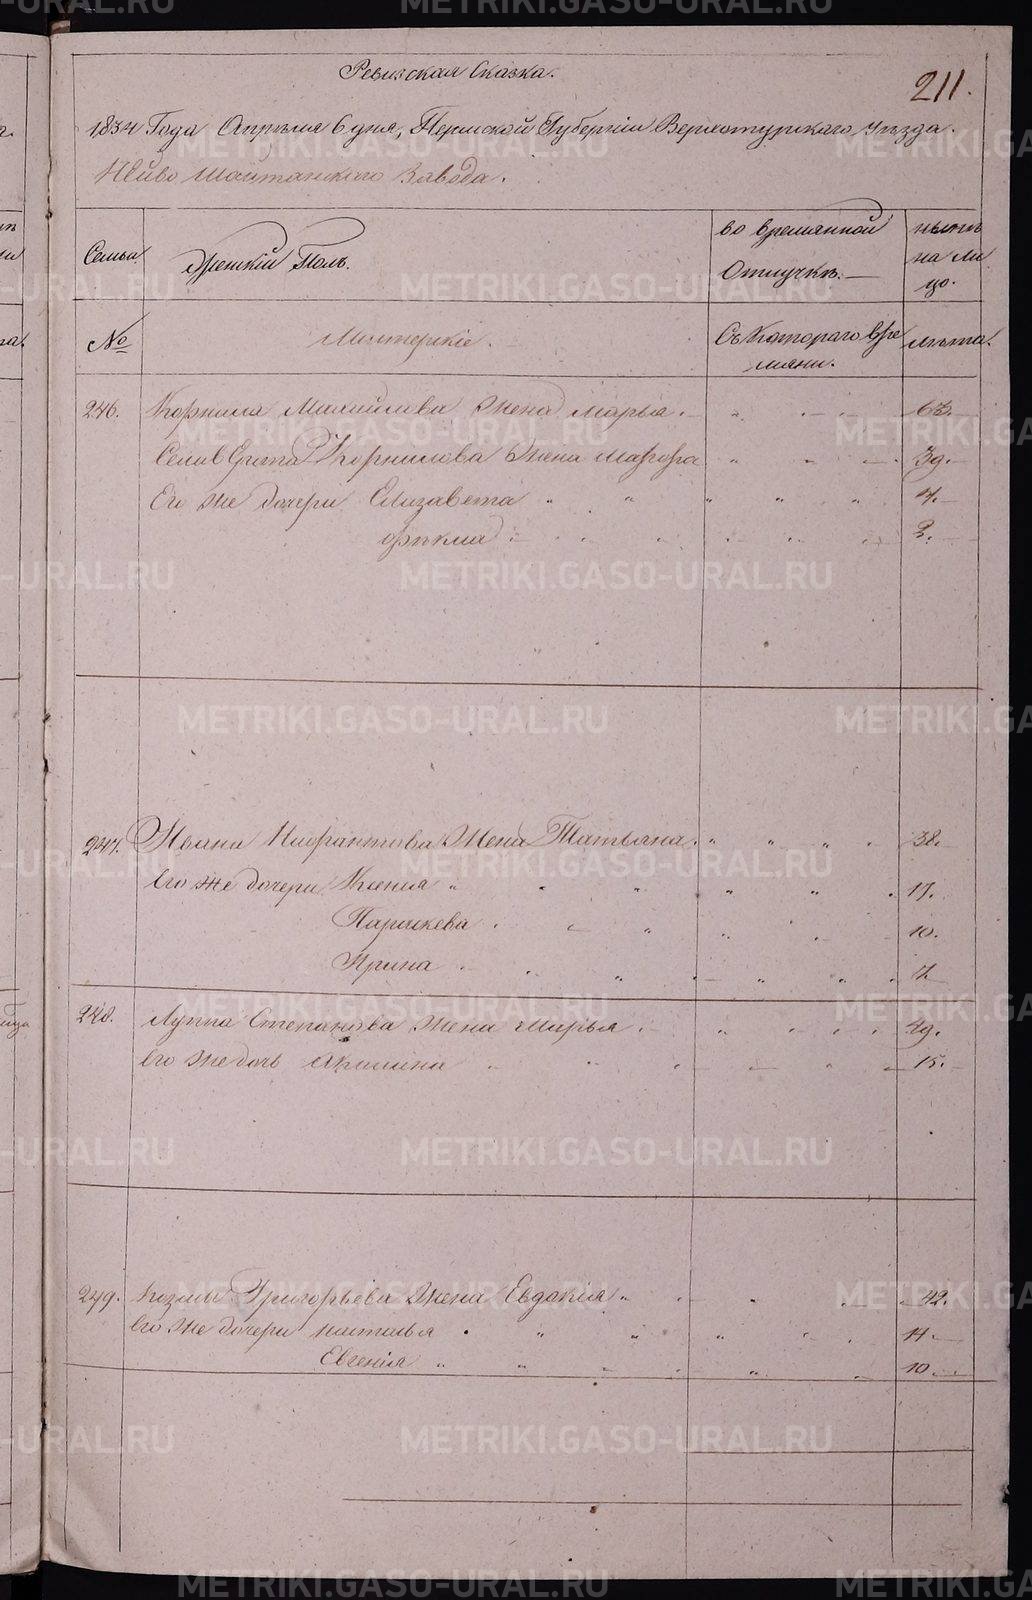 Ревизская Сказка.
211.
1834 Года Апреля 6 дня, Пермской Губернии Верхотурскаго уезда.
Нейво Шайтанскаго Завода.
Семьи. Женский Полъ. во времянной Отлучке. ныне на ли цо.
№ Мастерские. Съ котораго вре мяни. лета.
246. Корнила Михайлова жена Марья. 63.
Селиверста Корнилова жена 39.
Его же дочери Елизавета 4.
Фекла 2.
247. Ивана жена Татьяна. 38.
Его же дочери Ксения 17.
Параскева 10.
Ирина 7.
248. Луппа Степанова жена Марья 49.
Его же дочь Акилина 15.
249. Козмы Григорьева жена Евдокия 42.
Его же дочери Наталья 14.
Евгения 10.
METRIKI.GASO-URAL.RU